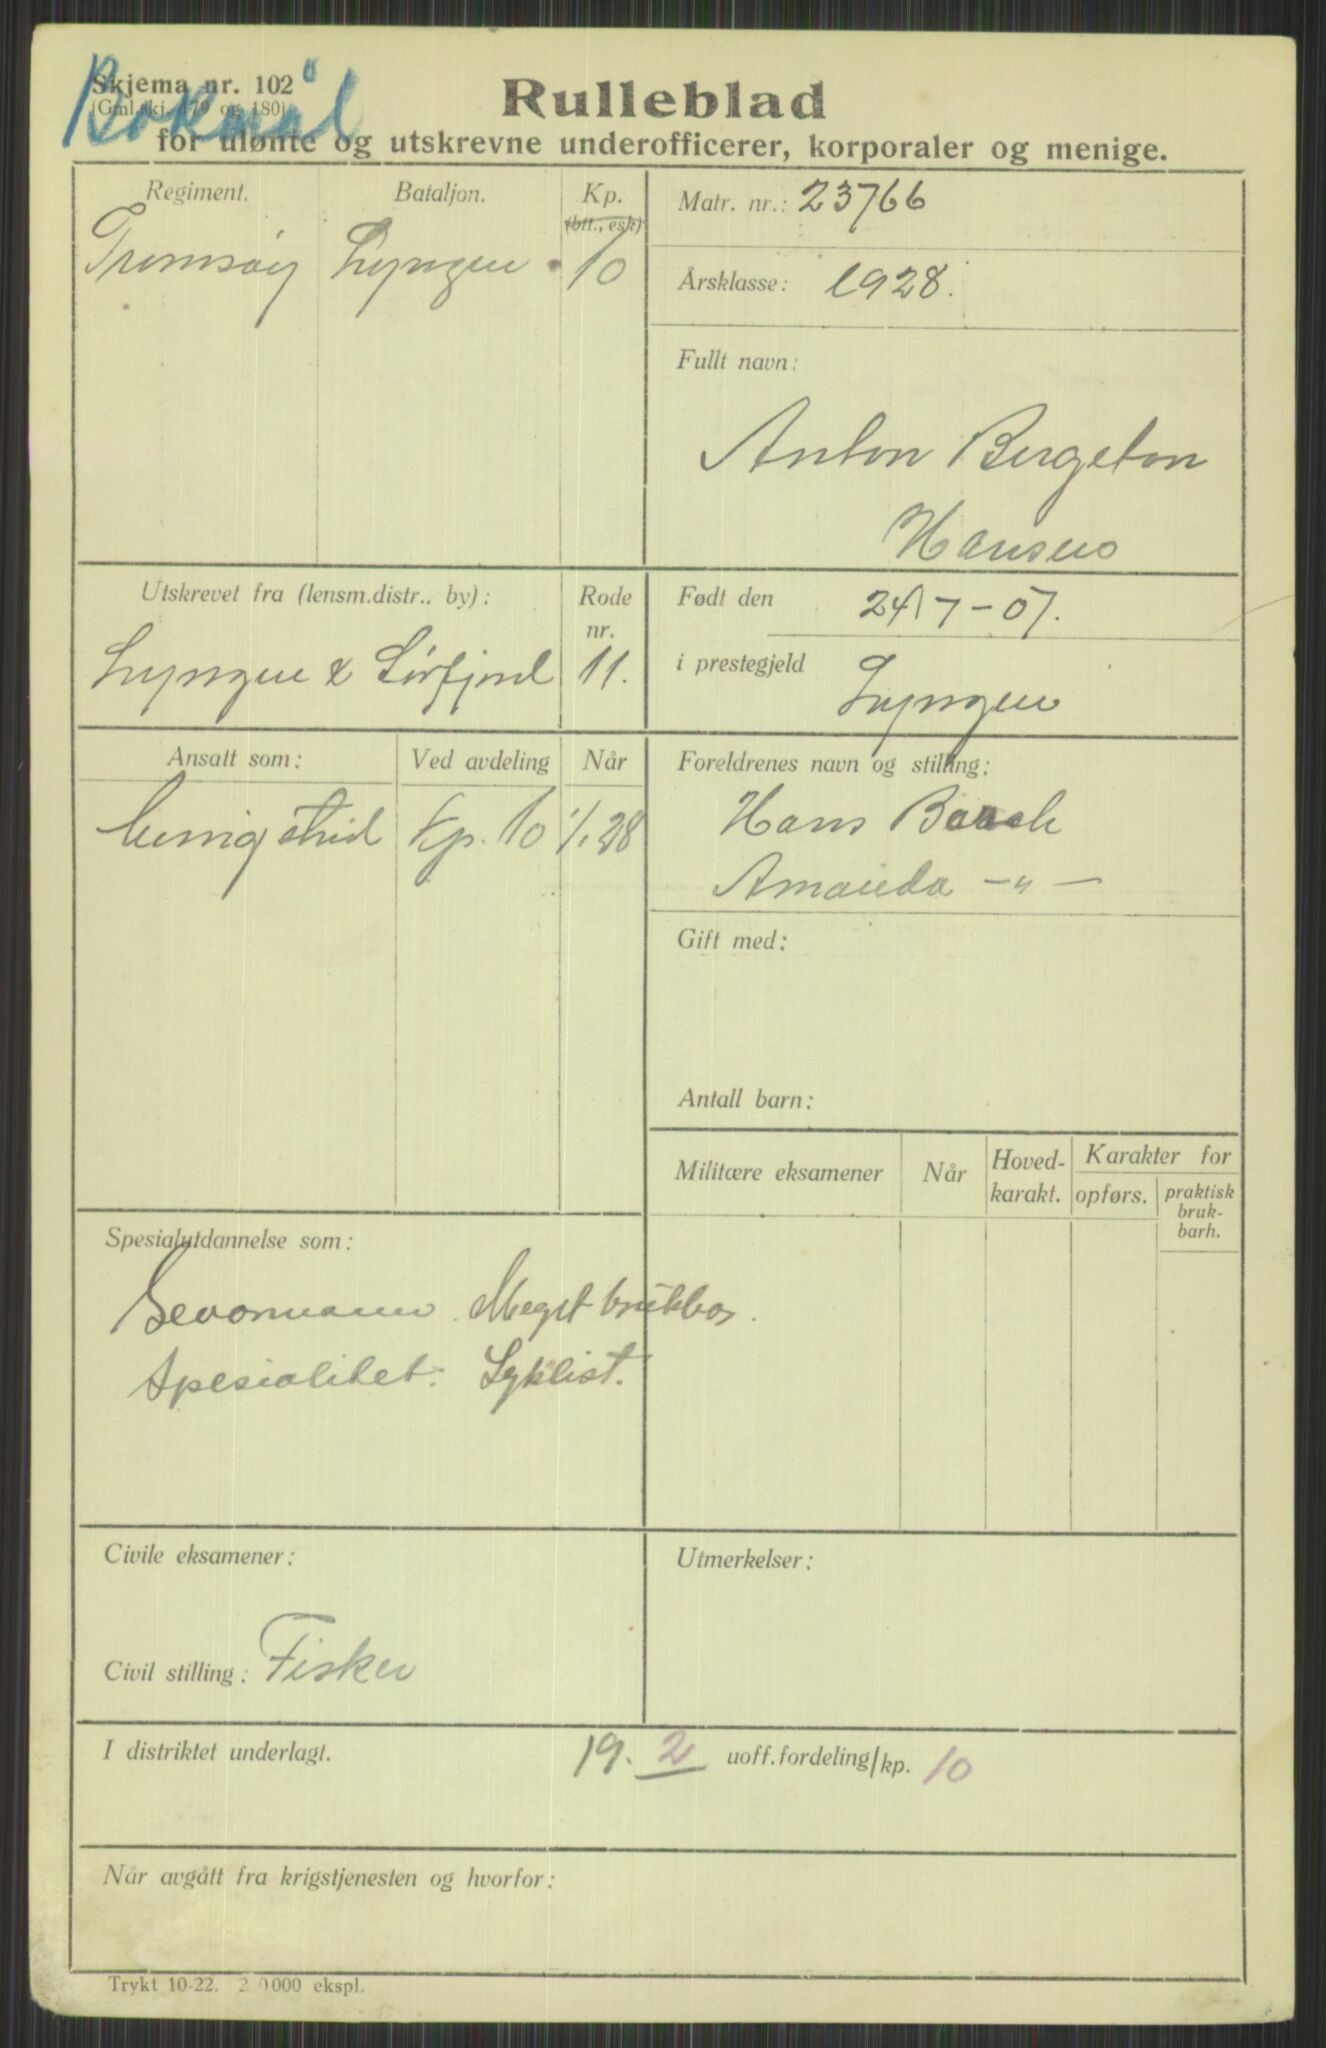 Bokmål
Skjema nr. 102
(Gml. skj. 179 og 180)
Rulleblad
for ulønte og utskrevne underofficerer, korporaler og menige.
Regiment. Bataljon. Kp.
(btt., esk)
Lyngen 10
Matr. nr.: 23766
Årsklasse: 1928.
Fullt navn:
Anton Bergeton
Hansen
Utskrevet fra (lensm.distr., by): Rode nr.
Lyngen & Sørfjord 11.
Født den 24/7-07.
i prestegjeld Lyngen
Ansatt som: Ved avdeling Når
Kp. 10 1/1 28
Foreldrenes navn og stilling:
Hans
Amanda -"-
Gift med:
Antall barn:
Militære eksamener Når Hoved-karakt. Karakter for
opførs. praktisk bruk-barh.
Spesialutdannelse som:
Gevormann. Meget brukbar.
Spesialitet: Syklist.
Civile eksamener:
Civil stilling: Fisker
Utmerkelser:
I distriktet underlagt. 19. 2 uoff.fordeling/kp. 10
Når avgått fra krigstjenesten og hvorfor:
Trykt 10-22. 2 0000 ekspl.